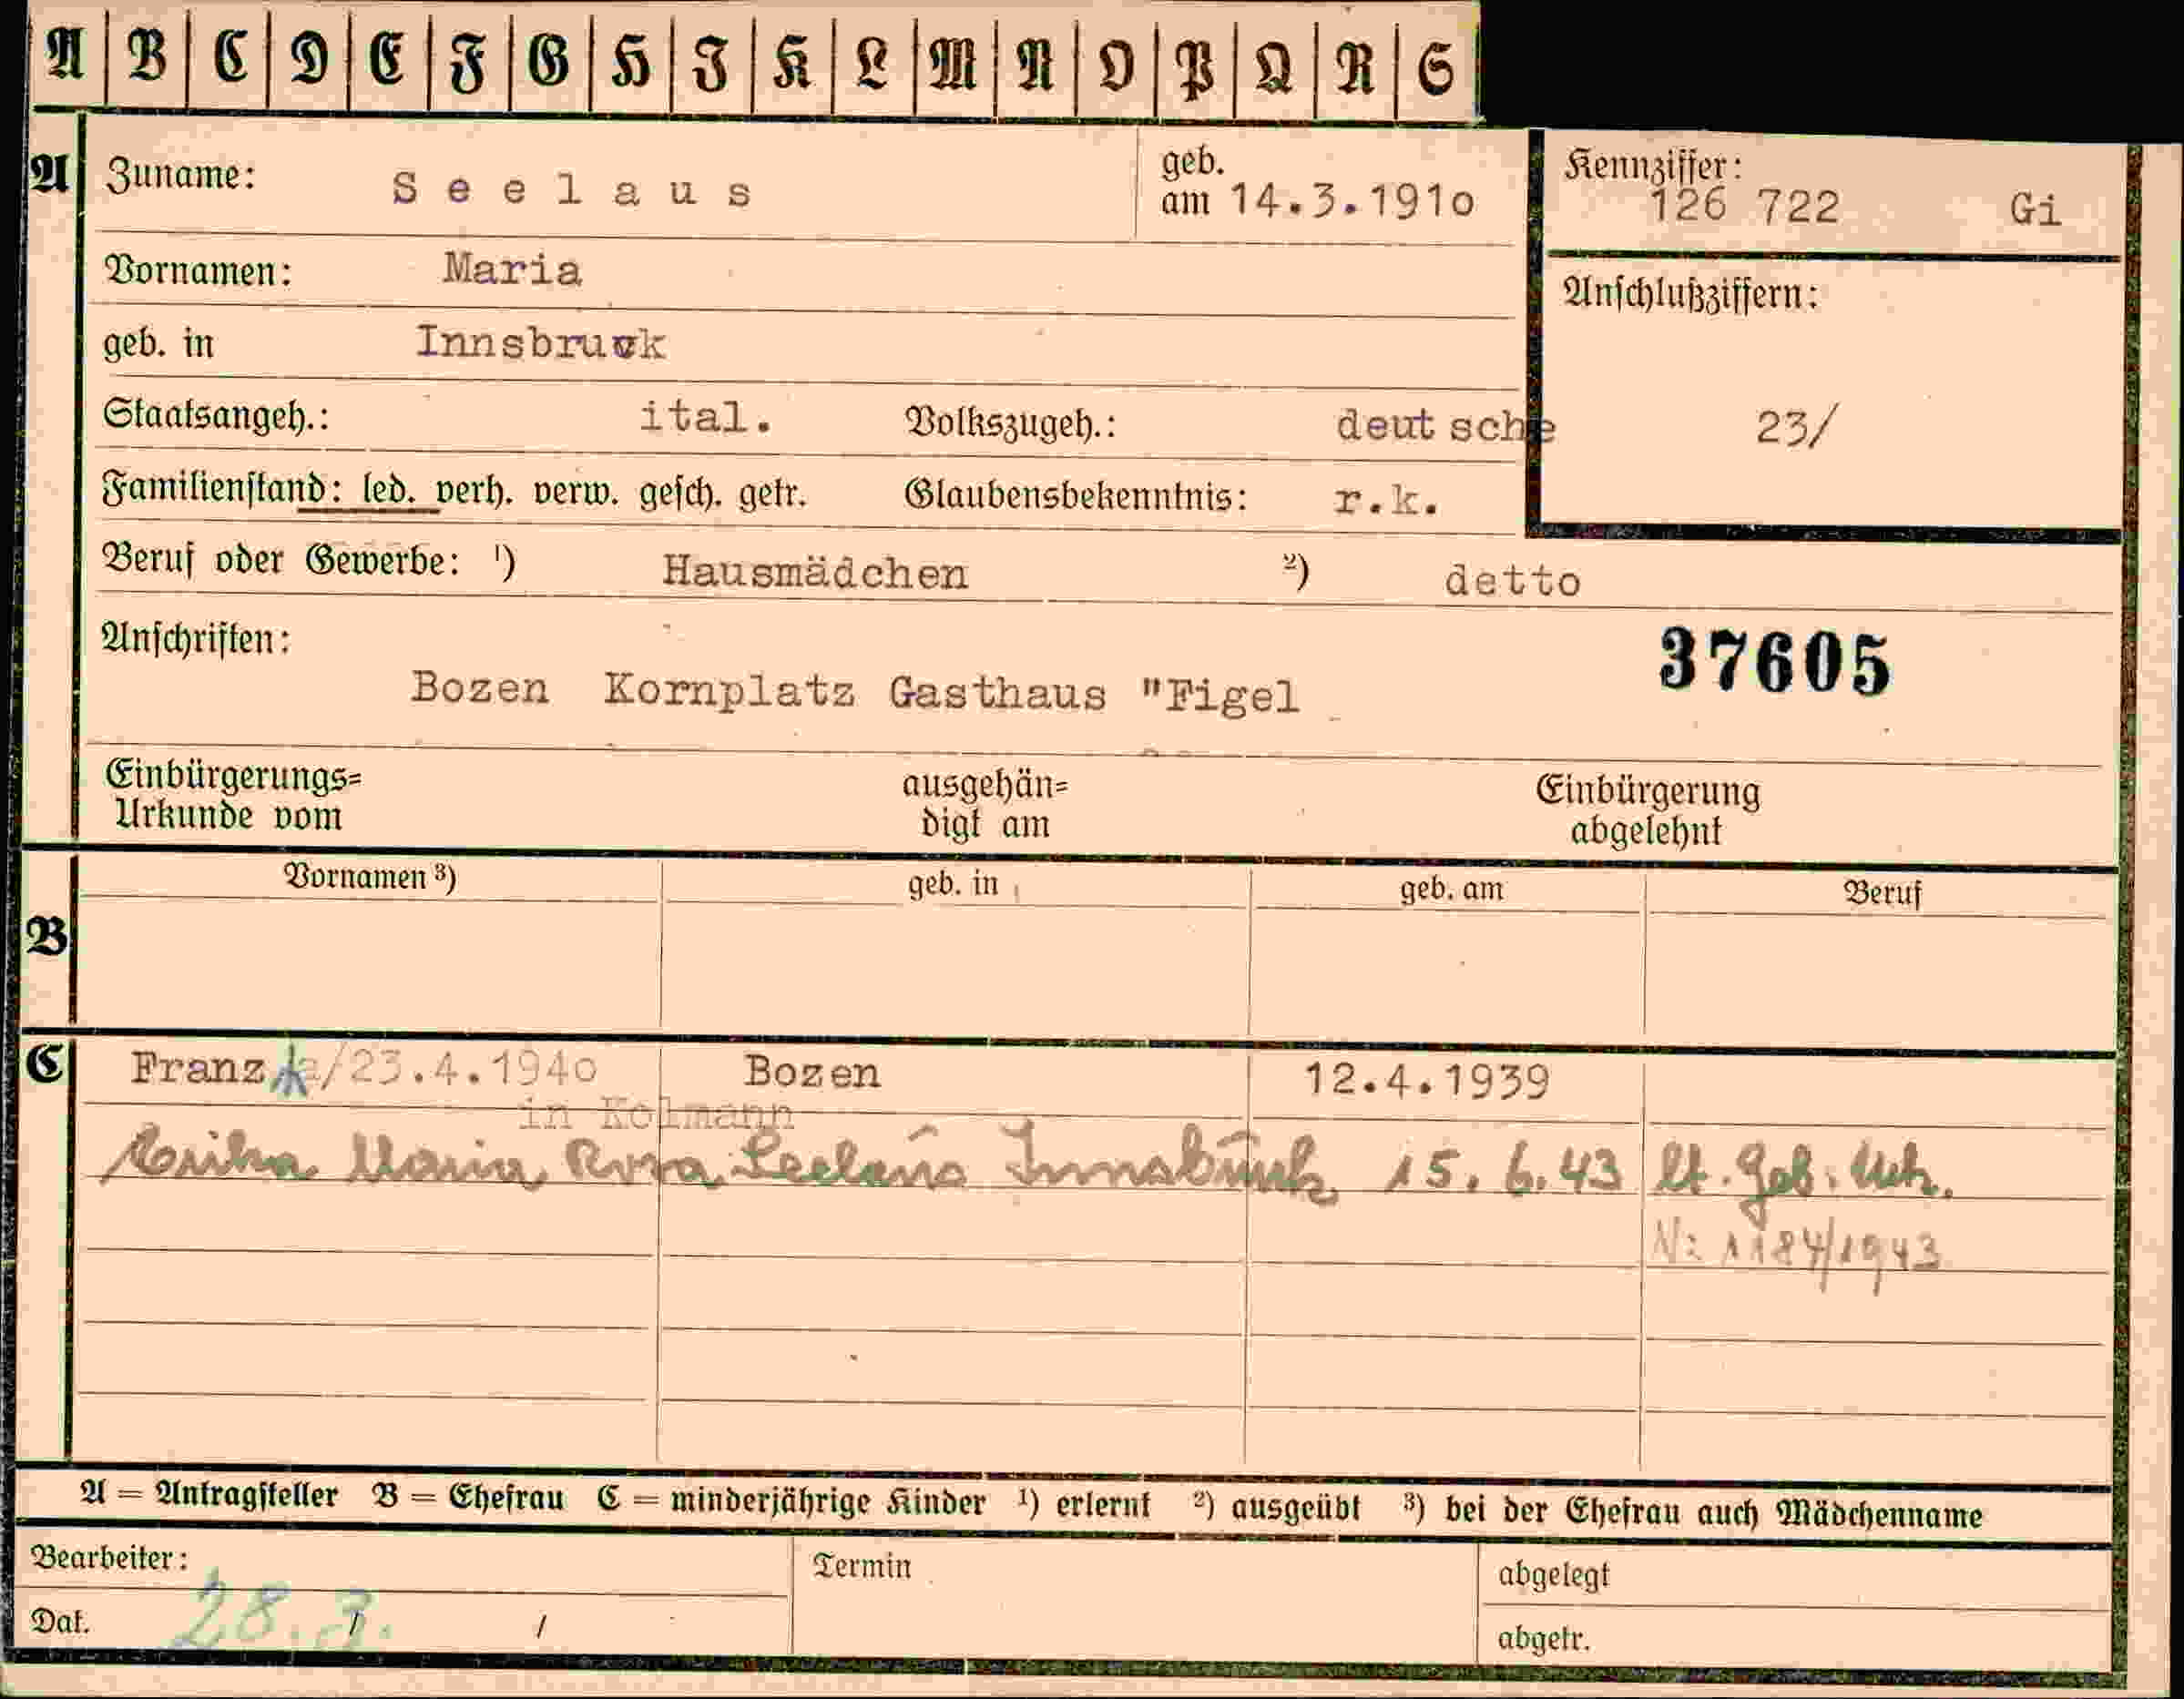 A B C D E F G H I K L M N O P Q R S
A Zuname: Seelaus geb. am 14.3.191o Kennziffer: 126 722 Gi
Vornamen: Maria
Anschlußziffern:
geb. in Innsbruck
Staatsangeh.: ital. Volkszugeh.: deutsche 23/
Familienstand: led. verh. verw. gesch. getr. Glaubensbekenntnis: r.k.
Beruf oder Gewerbe: 1) Hausmädchen 2) detto
Anschriften: 37605
Bozen Kornplatz Gasthaus "Figel
Einbürgerungs= ausgehän= Einbürgerung
Urkunde vom digt am abgelehnt
Vornamen 3) geb. in geb. am Beruf
B
C Franz /23.4.194o Bozen 12.4.1939
in Kollmann
Erika Maria Rosa Seelaus Innsbruck 15. 6.43 lt. Geb. Urk.
N: 1184/1943
A = Antragsteller B = Ehefrau C = minderjährige Kinder 1) erlernt 2) ausgeübt 3) bei der Ehefrau auch Mädchenname
Bearbeiter: Termin abgelegt
Dat. 28.3. / / abgetr.